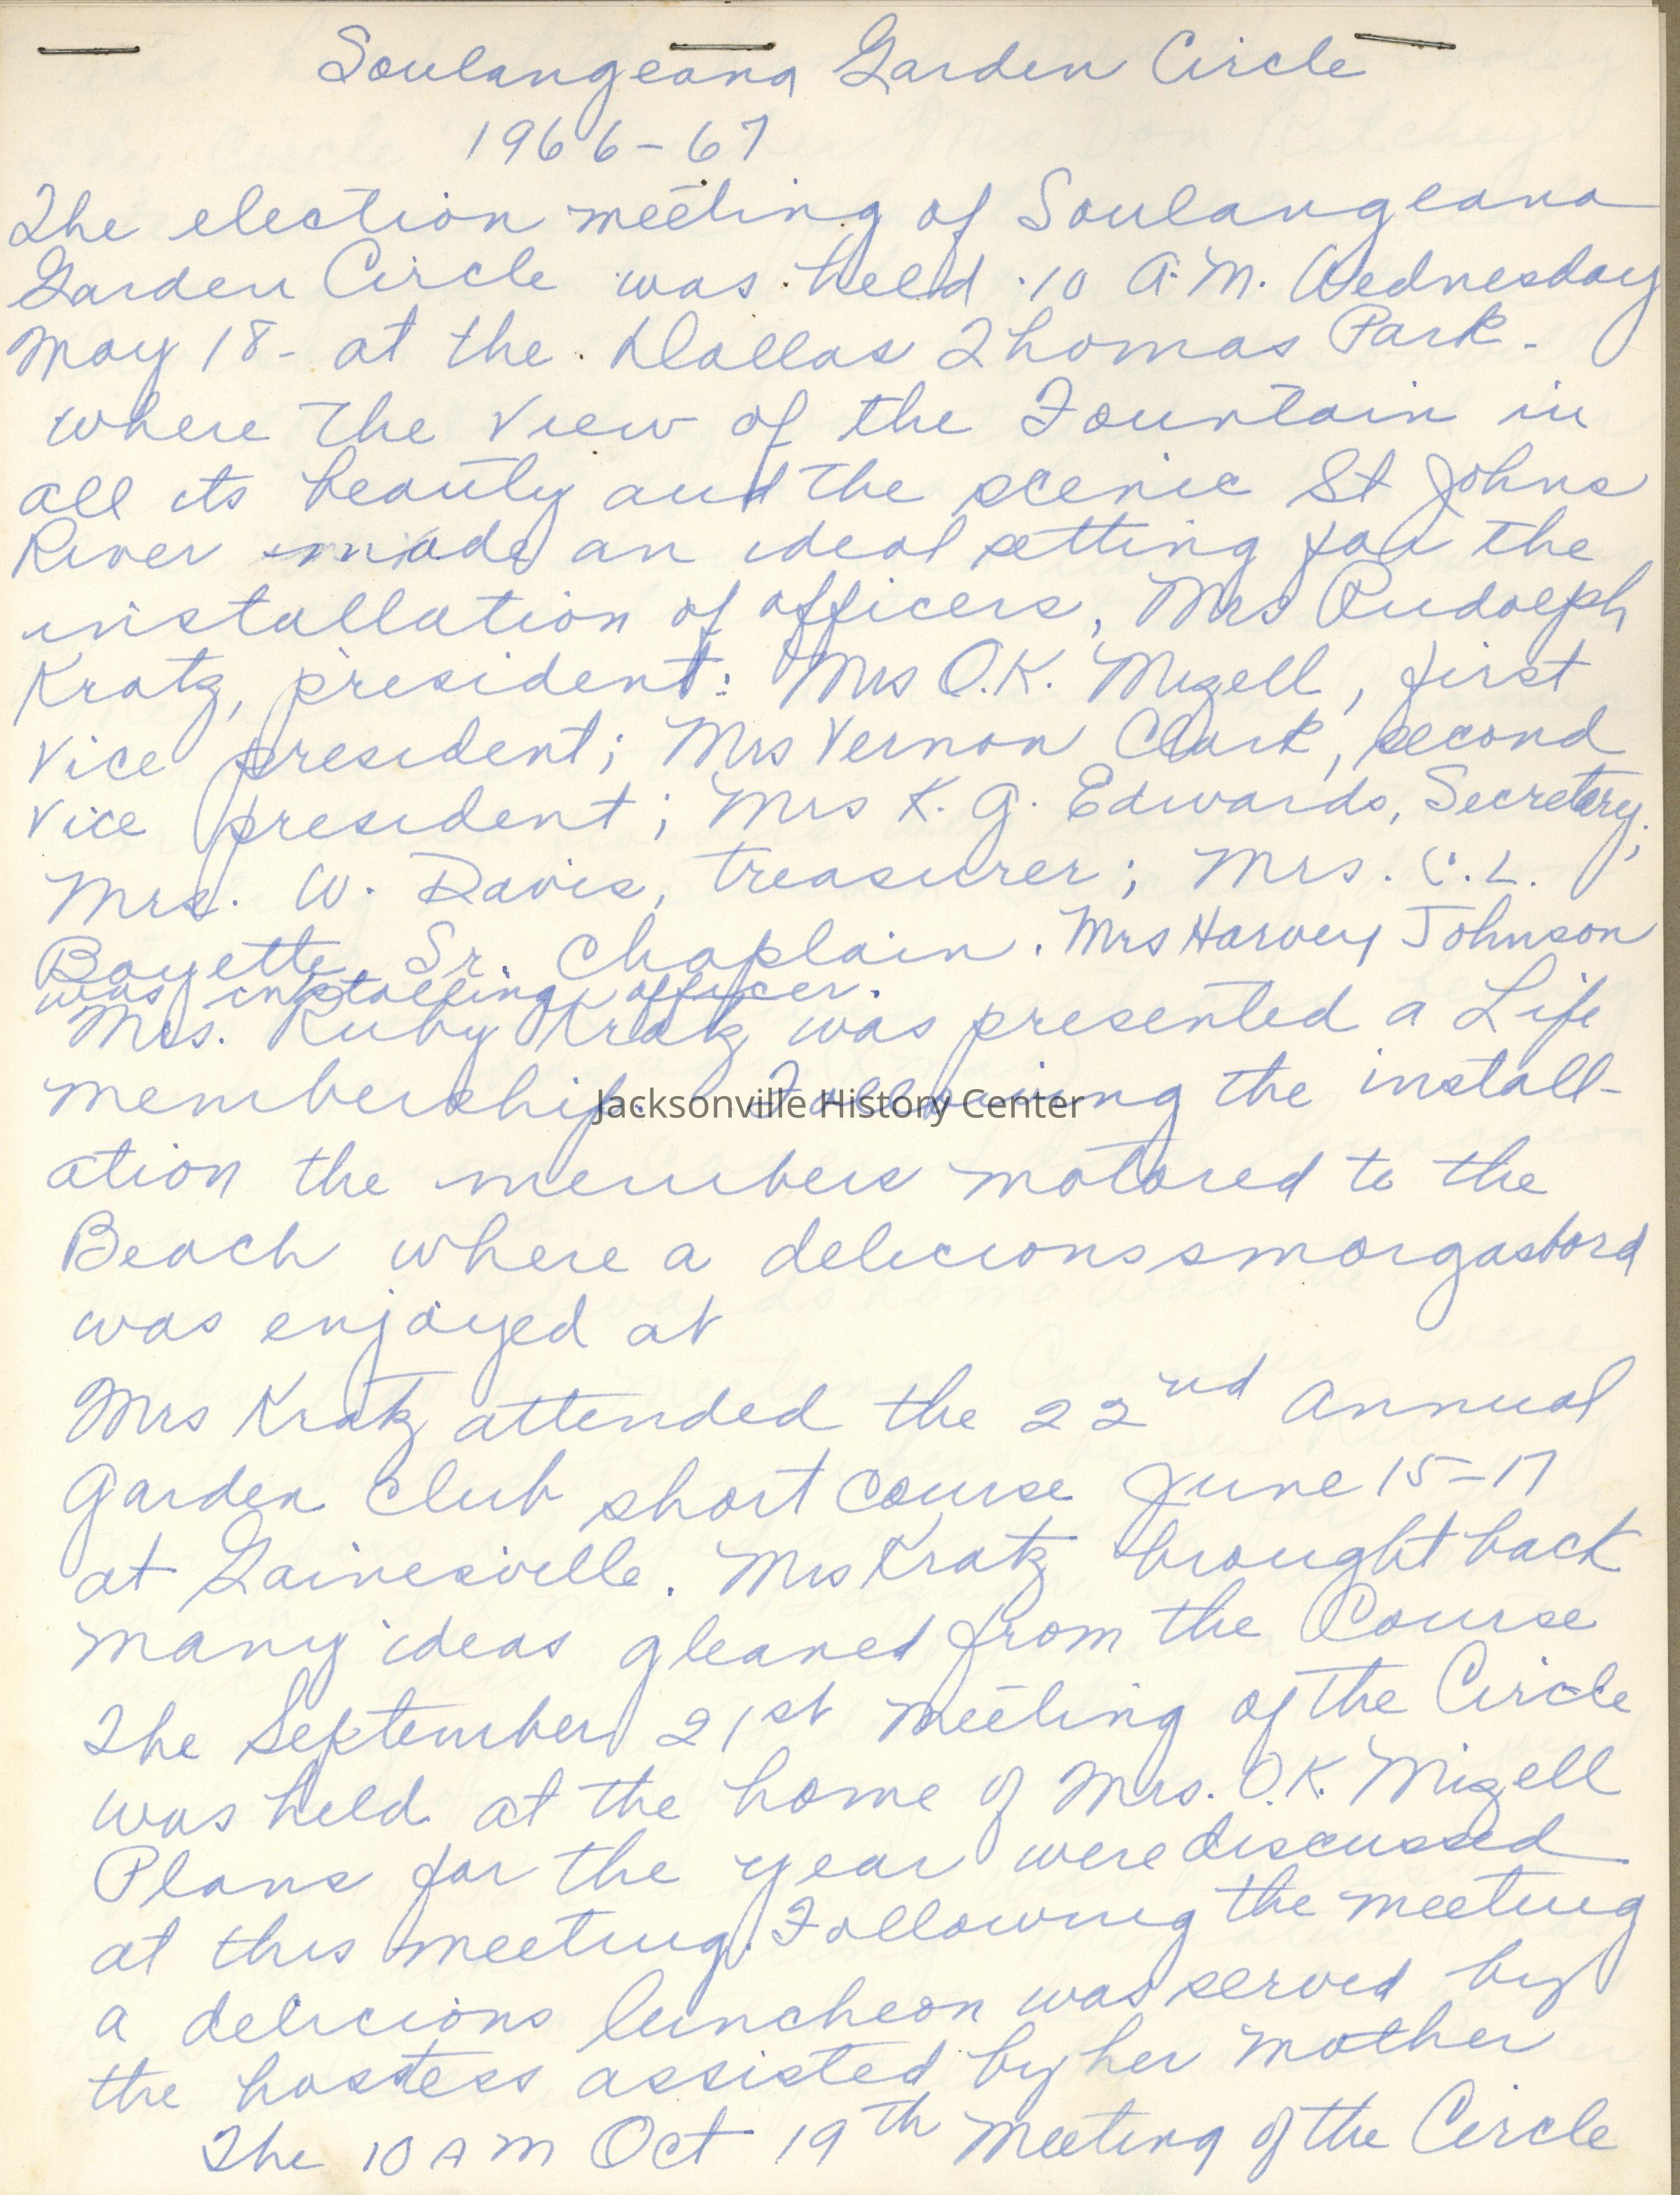 Soulangeana Garden Circle
1966-67
The election meeting of Soulangeana
Garden Circle was held 10 A.M. Wednesday
May 18- at the Dallas Thomas Park.
where the view of the Fountain in
all its beauty and the scenic St Johns
River made an ideal setting for the
installation of officers, Mrs Rudolph
Kratz, president: Mrs O.K. Mizell, first
vice president; Mrs Vernon Clark, second
vice president; Mrs K. G. Edwards, Secretary;
Mrs. W. Davis, treasurer; Mrs. C. L.
Boyette, Sr. Chaplain. Mrs Harvey Johnson
was installing officer.
Mrs. Ruby Kratz was presented a Life
membership. Following the install-
Jacksonville History Center
ation the members motored to the
Beach where a delicious smorgasbord
was enjoyed at
Mrs Kratz attended the 22nd Annual
Garden Club short course June 15-17
at Gainesville. Mrs Kratz brought back
many ideas gleaned from the Course
The September 21st meeting of the Circle
was held at the home of Mrs. O.K. Mizell
Plans for the year were discussed
at this meeting. Following the meeting
a delicious luncheon was served by
the hostess assisted by her mother
The 10 AM Oct 19th Meeting of the Circle